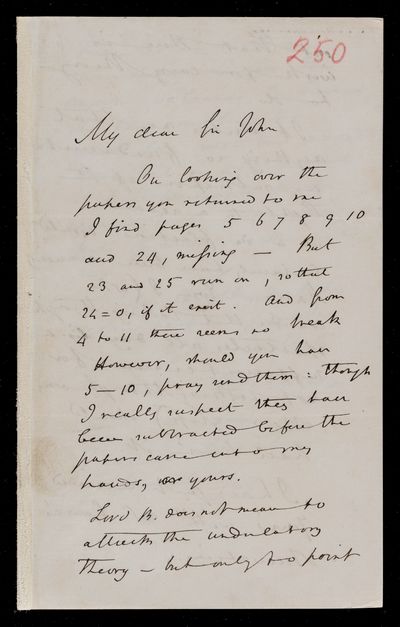 250
My dear Sir John
On looking over the
papers you returned to me
I find pages 5 6 7 8 9 10
and 24, missing — But
23 and 25 run on, so that
24 = 0, if it exist. And from
4 to 11 there seems no break
However, should you have
5—10, pray send them: though
I really suspect they have
been subtracted before the
papers came into my
hands, or yours.
Lord B. does not mean to
attack the undulatory
Theory — but only to point